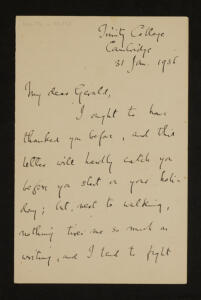 Trinity College
Cambridge
31 Jan. 1936
My dear Gerald,
I ought to have
thanked you before, and this
letter will hardly catch you
before you start on your holi-
day; but, next to walking,
nothing tires me so much as
writing, and I tend to fight